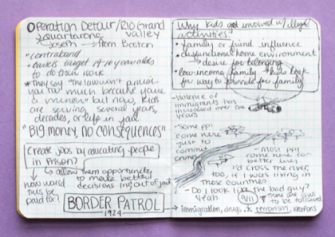 Operation Detour/RIO Grand
Valley
Joseph → from Boston
- contraband
to do
you too much because you're
a minor but now, kids
are several years,
decades, or life in jail
"Big money, no consequences"
Create jobs by educating people
in Prison?
allow them opportunity
to make better
decisions out of
how would
this be
paid for?
BORDER PATROL
1924
Why kids get involved w/ illegal
activities
• family or friend influence
• dysfunctional home environment
→ desire for belonging
• low-income family → kids look
for way to provide for family
- Violence of
immigrants has
over the
years
- Some ppl
come here
just to
commit
crimes
- Most ppl
come here for
better lives
I'd cross the river
too, if I was living in
these countries
- Do I look like the bad guy?
Yeah
There are
to be followed
Immigration, drugs, weapons